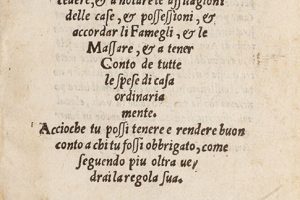 tedere, & a notare le assuagioni
delle case, & possessioni, &
accordar li Famegli, & le
Massare, & a tener
Conto de tutte
le spese di casa
ordinaria
mente.
Accioche tu possi tenere e rendere buon
conto a chi tu fossi obbrigato, come
seguendo piu oltra ue/
drai la regola sua.